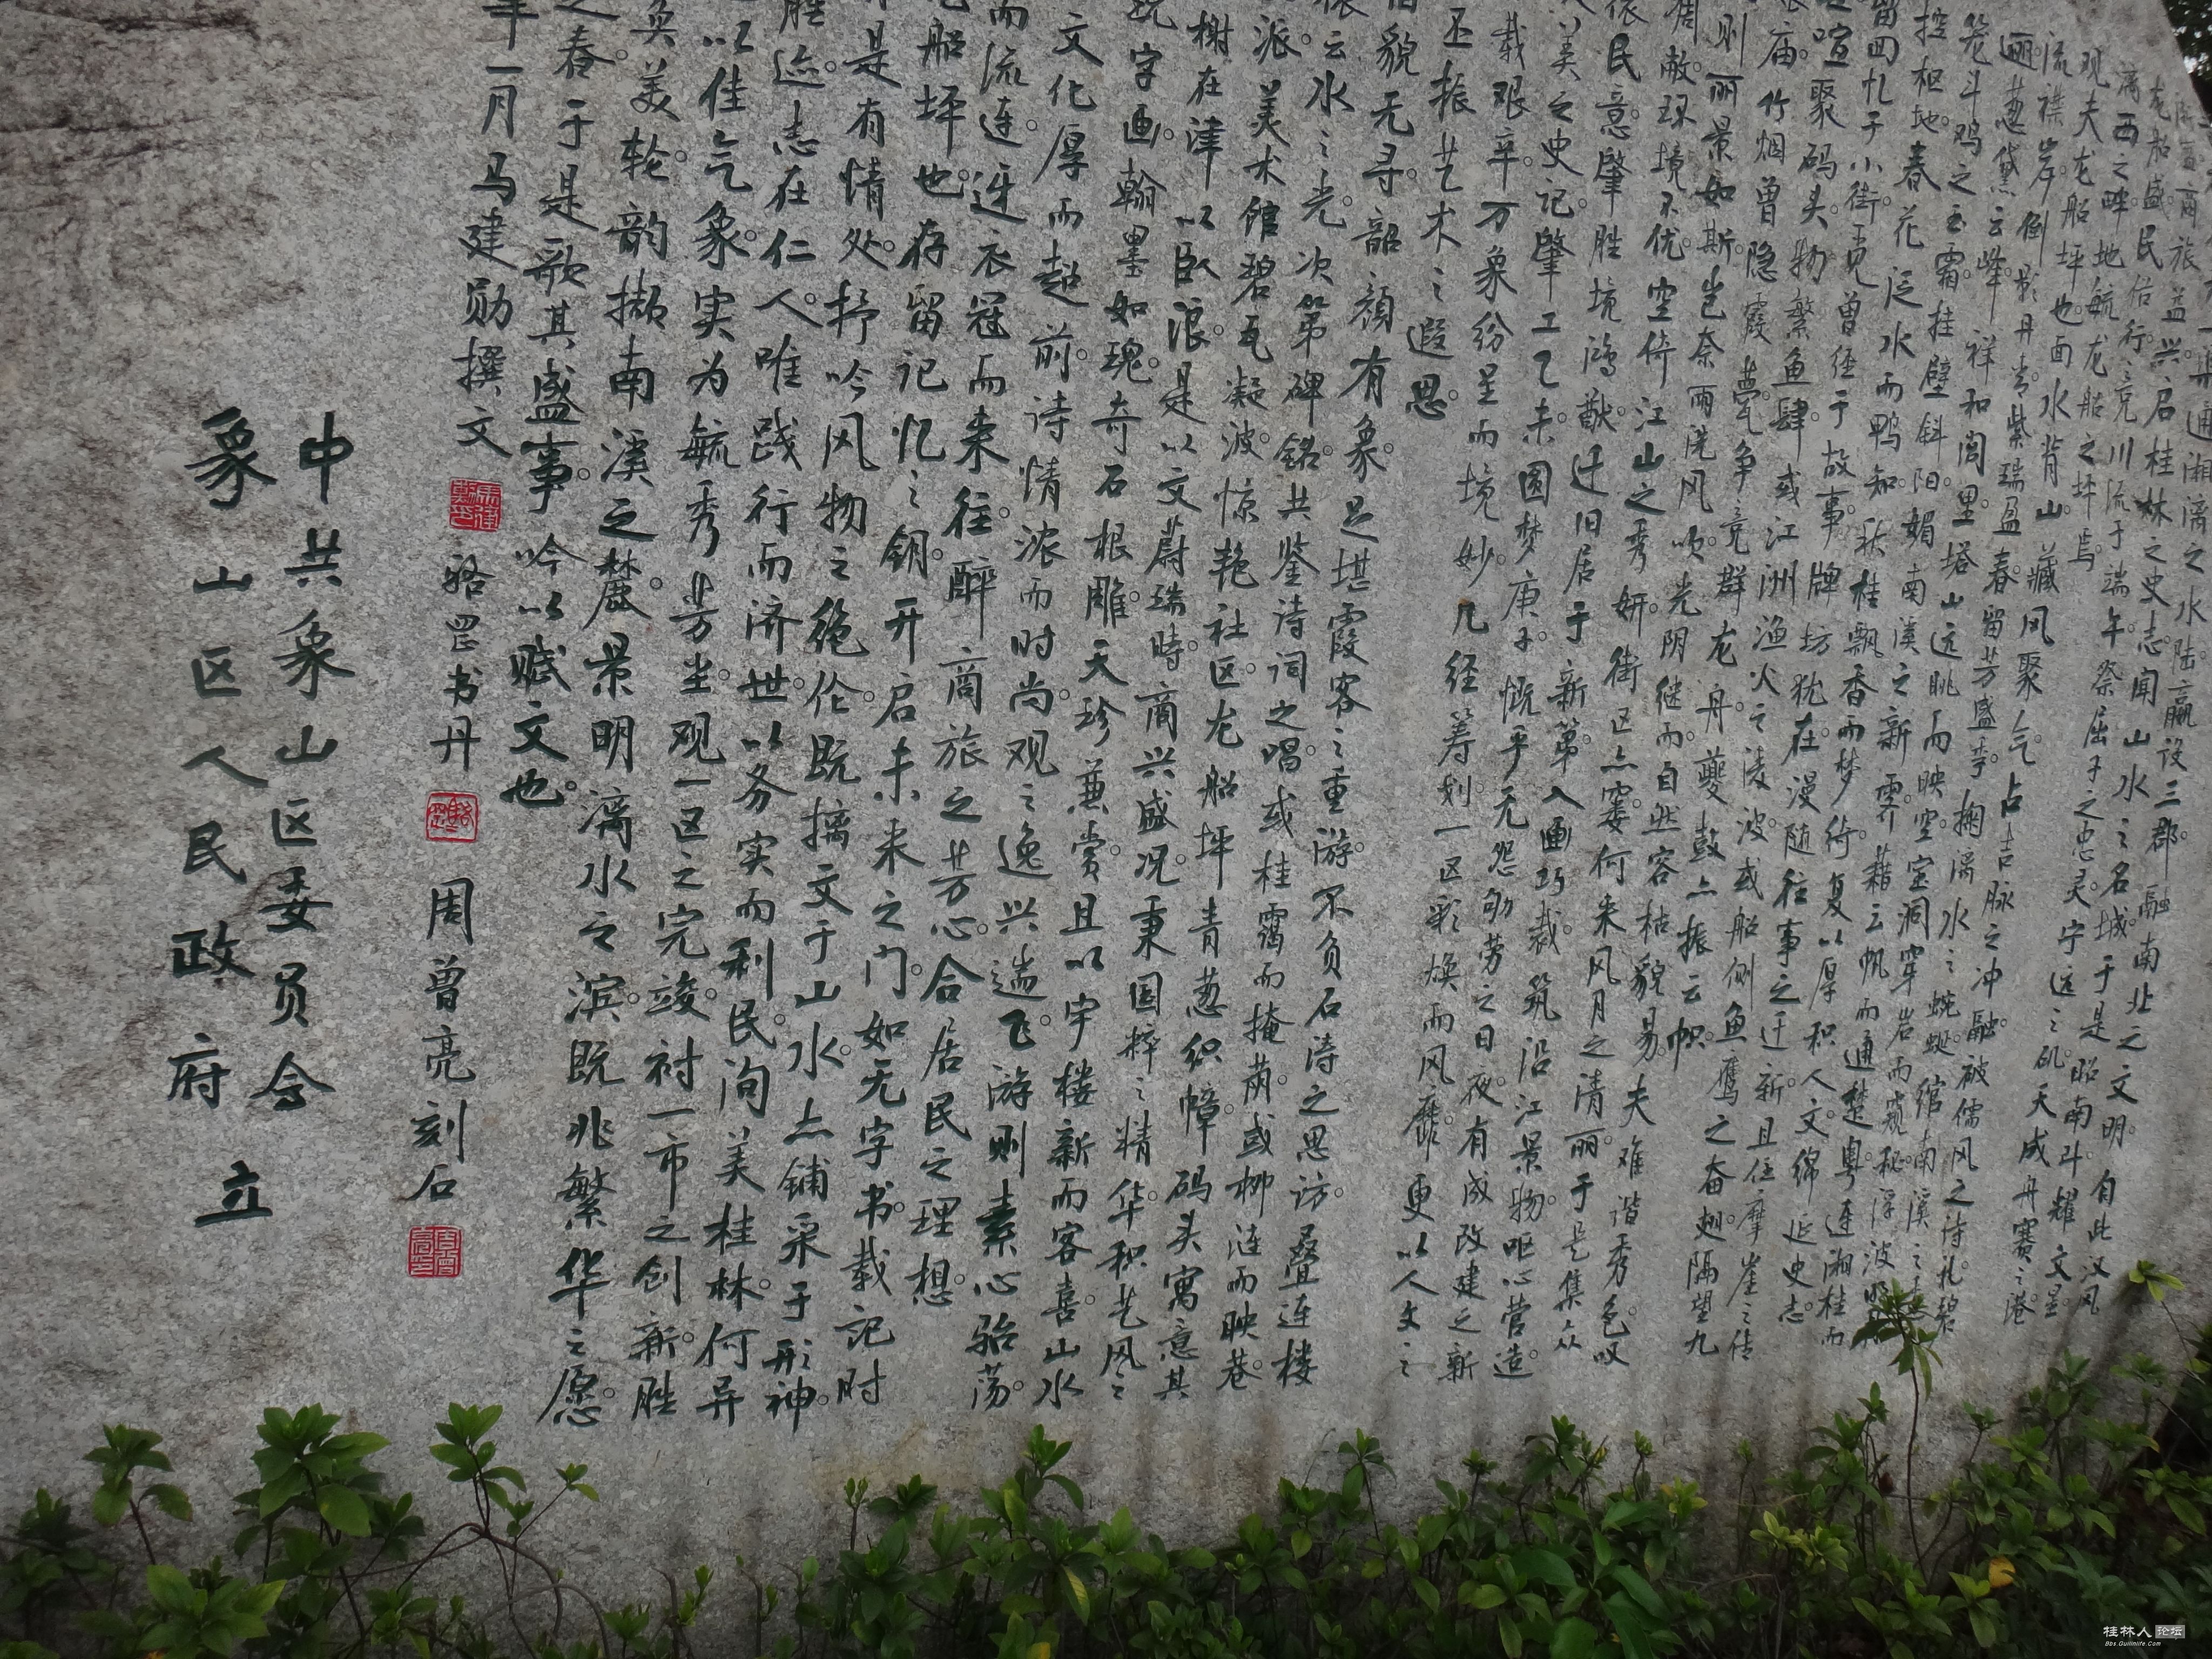 通湘漓之水陆。赢设三郡。融南北之文明。自此汉风
龙船盛民俗。行之竞川流于端午。祭屈子之忠灵。宁远之矶。天成丹赛之港
观夫龙船坪地。毓龙船之坪焉
流襟岸。倒影丹青。紫瑞盈春。留芳盛事。掬漓水之蜿蜒。绾南溪之
丽。葱黛云峰。祥和闾里。塔山远眺而映空。室洞穿岩而窥秘。深波
笼斗鸡之玉霜。挂壁斜阳。媚南溪之新霁。藉云帆而通楚粤。连湘桂而
控枢地。春花泛水而鸭知。秋桂飘香而梦绮。复以厚积人文。绵延史志
留回忆于小街。觅曾经于故事。牌坊犹在。漫随往事之迁新。且任摩崖之传
喧聚码头。物繁鱼肆。或江洲渔火之凌波。或船侧鱼鹰之奋翅。隔望九
庙。竹烟曾隐霞甍。争竞群龙舟。夔鼓亦振云帜
则丽景如斯。岂奈雨洗风吹。光阴继而自然容枯貌易。夫难谐秀色。叹
凋敝。环境不优。空倚江山之秀妍。街区亦窭。何来风月之清丽。于是集众
依民意。肇胜境鸿猷。迁旧居于新第。入画巧裁。筑沿江景物。呕心营造
美之史记。肇工乙未。圆梦庚子。慨乎无怨劬劳之日夜。有成改建之新
载艰辛。万象纷呈而境妙。几经筹划。一区彩焕而风靡。更以人文之
丕振艺术之遐思
旧貌无寻。韶颜有象。足堪霞客之重游。不负石涛之思访。叠连楼
依云水之光。次第碑铭。共鉴诗词之唱。或桂霭而掩荫。或柳涟而映巷
派。美术馆碧瓦凝波。惊艳社区。龙船坪青葱织幛。码头寓意其
榭在津以卧浪。是以文蔚瑞时。商兴盛况。秉国粹之精华。积艺风之
玩字画。翰墨如瑰。奇石根雕。天珍兼赏。且以宇楼新而客喜。山水
文化厚而超前。诗情浓而时尚。观之逸兴遄飞。游则素心骀荡
而流连。迓衣冠而来往。醉商旅之芳心。合居民之理想
龙船坪也。存留记忆之钥。开启未来之门。如无字书。载记时
是有情处。抒吟风物之绝伦。既摛文于山水。亦铺采于形神
胜迹。志在仁人。唯践行而济世。以务实而利民。洵美桂林。何异
之以佳气象。实为毓秀芳。坐观一区之完竣。衬一市之创新。胜
奂美轮。韵撷南溪之麓。景明漓水之滨。既兆繁华之愿
之春。于是歌其盛事。吟以赋文也。
年一月 马建勋撰文 骆罡书丹 周曾亮刻石
中共象山区委员会
象山区人民政府 立
桂林人论坛
Bbs.Guilinlife.Com